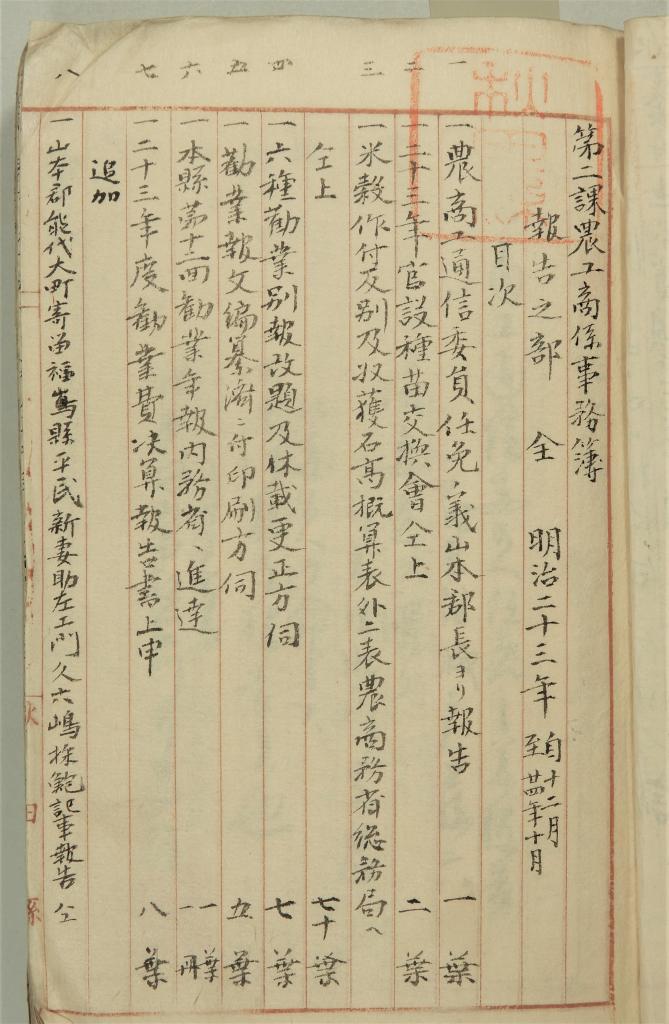 第二課農工商係事務簿
報告之部 仝 明治二十三年 自十二月 至廿四年十月
目次
一 一農商工通信委員任免ノ義山本郡長ヨリ報告 一葉
二 一二十三年官設種苗交換會仝上 二葉
三 一米穀作付反別及収獲石高概算表外二表農商務省総務局ヘ
仝上 七十葉
四 一六種勧業別報改題及休載更正方伺 七葉
五 一勧業報文編纂済ニ付印刷方伺 五葉
六 一本縣第十二回勧業年報内務省ヘ進達 一葉 一冊
七 一二十三年度勧業費決算報告書上申 八葉
追加
八 一山本郡能代大町寄留福島縣平民新妻助左エ門久六嶋採鮑記事報告 仝
秋田縣